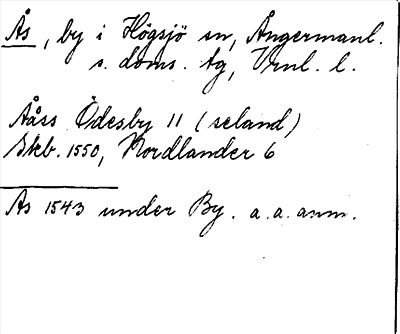 Ås, by i Högsjö sn, Ångermanl.
s. doms. tg, Vrnl. l.
Aåss Ödesby 11 (seland)
Skb. 1550, Nordlander 6
As 1543 under By. a. a. anm.